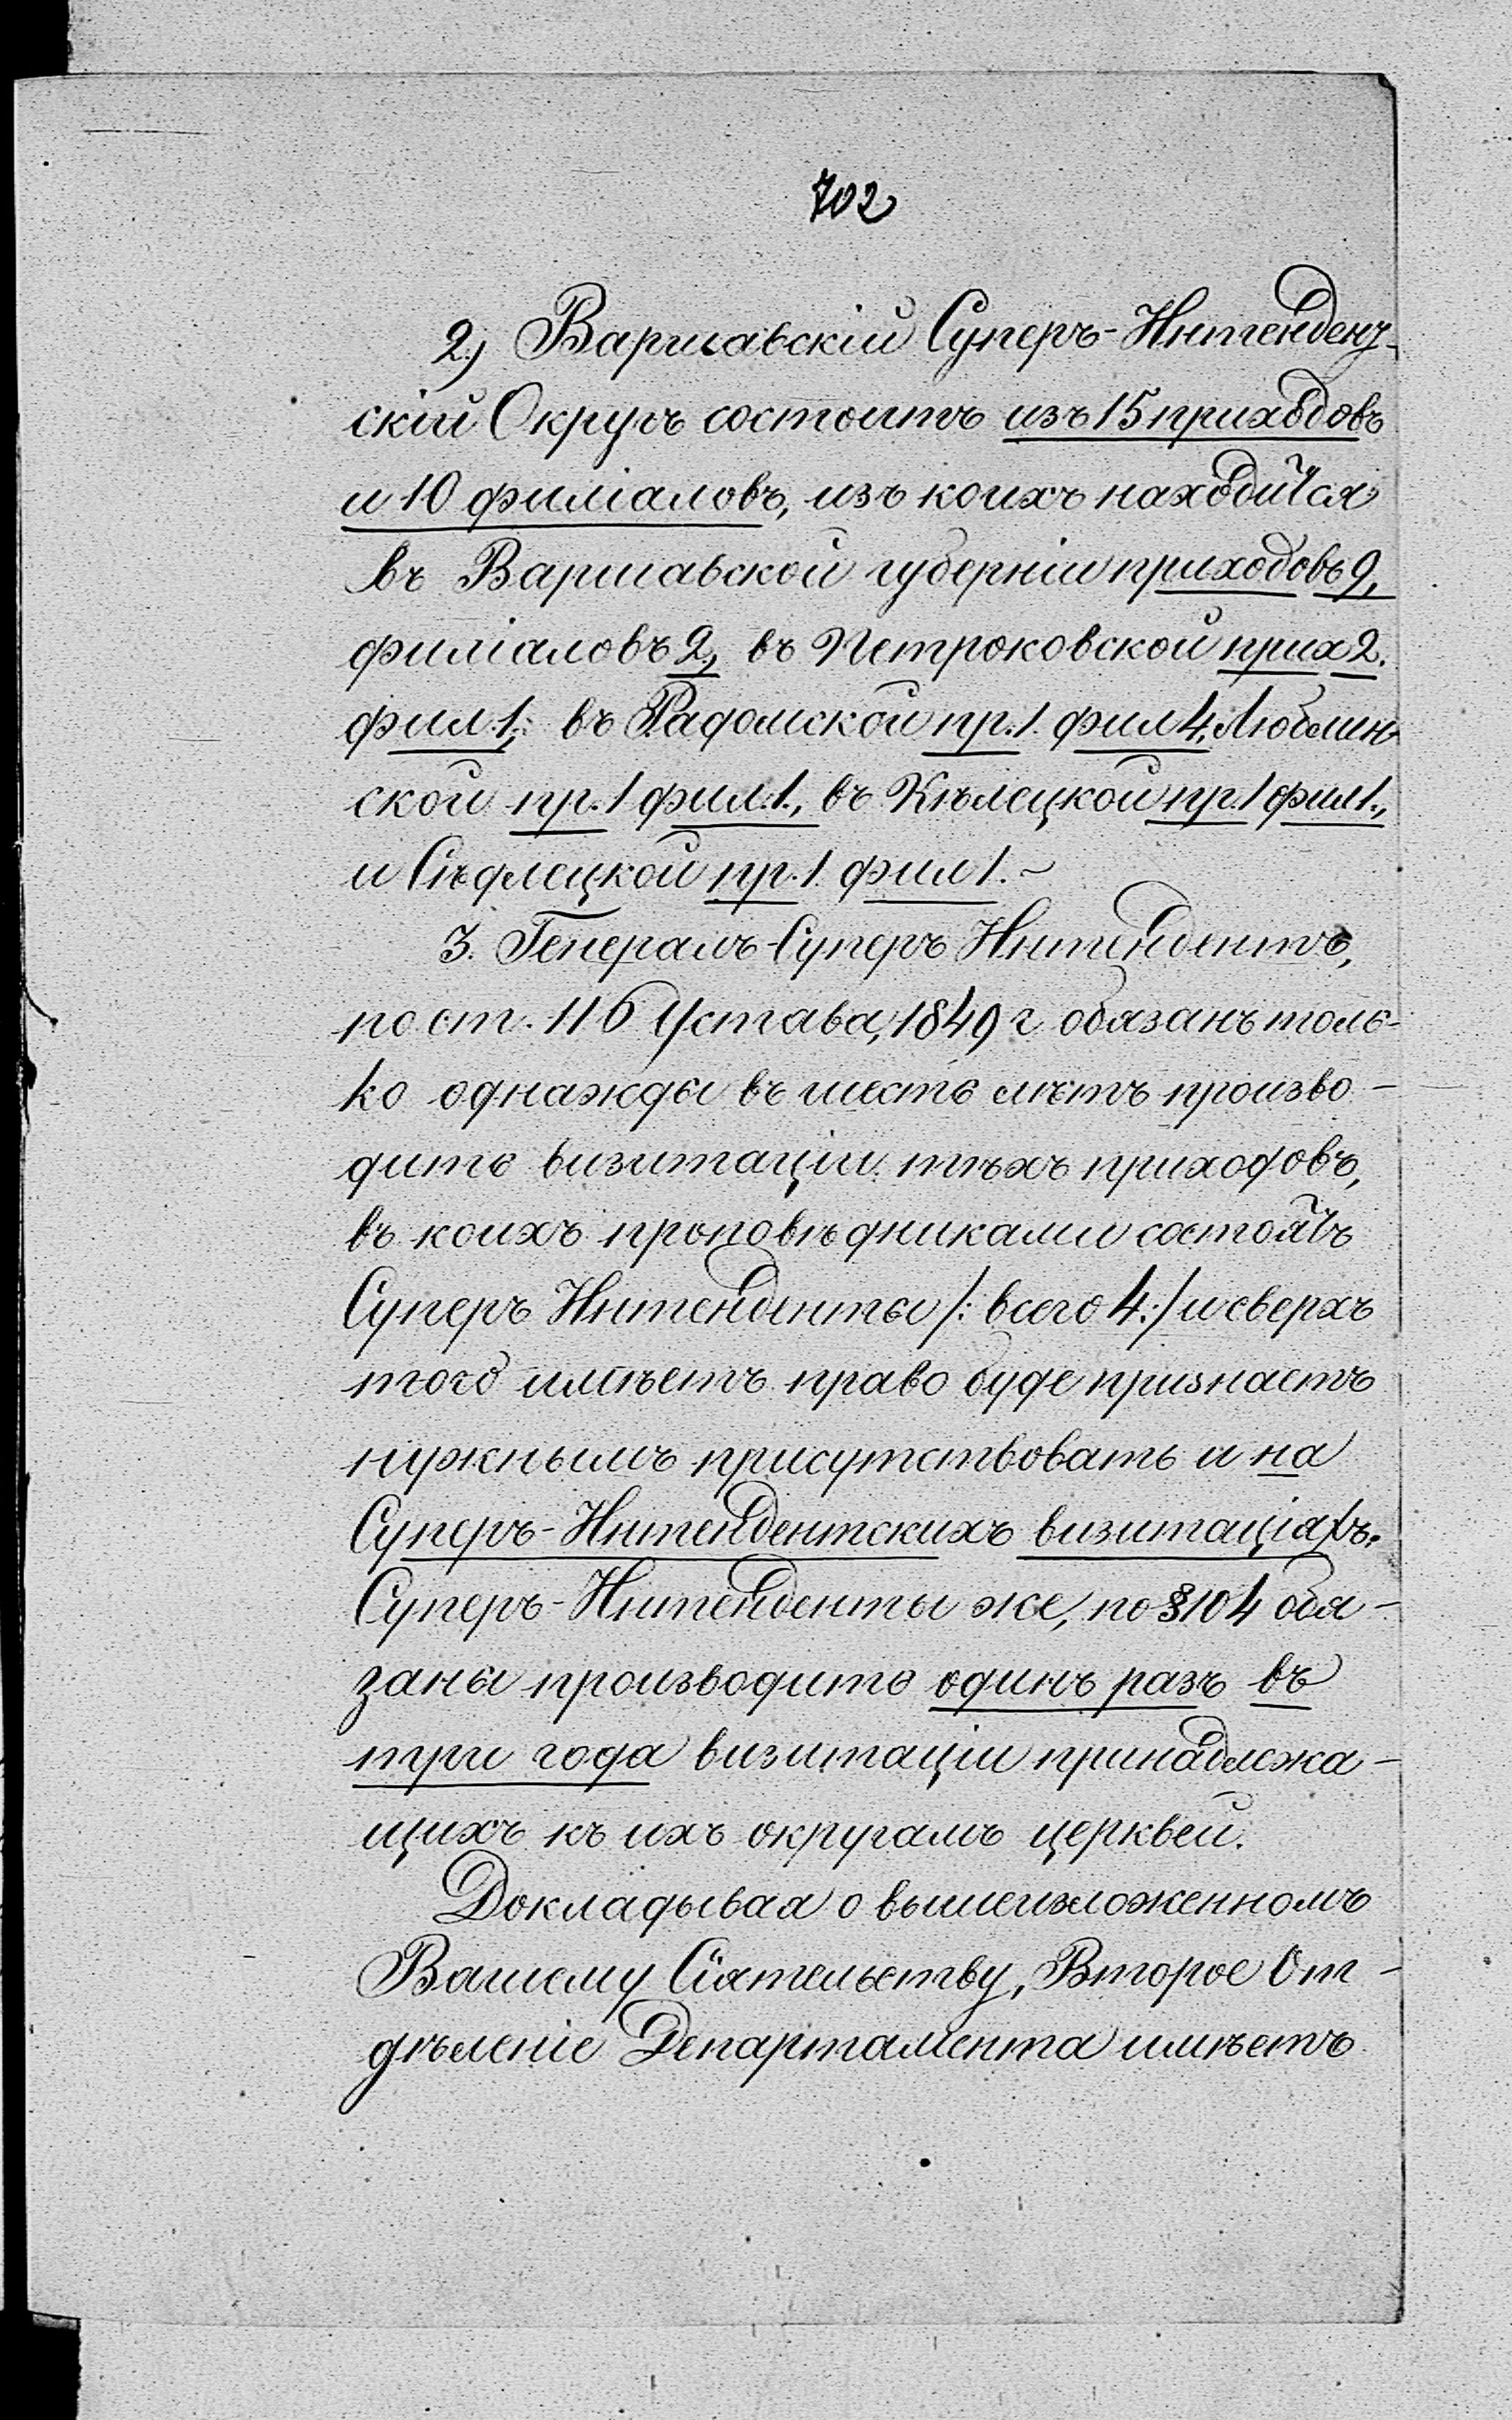 702
2) Варшавскій Суперъ-Интенденц-
скій Округъ состоитъ изъ 15 приходовъ
и 10 филіаловъ, изъ коихъ находится
въ Варшавской губерніи приходовъ 9,
филіаловъ 2, въ Петроковской прих 2.
фил. 1; въ Радомской пр. 1. фил 4, Люблин-
ской пр. 1 фил. 1., въ Кѣлецкой пр. 1 фил 1.,
и Сѣдлецкой пр. 1. фил 1. ~
3. Генералъ-Суперъ Интендентъ,
по ст. 116 Устава, 1849 г. обязанъ толь-
ко однажды въ шесть лѣтъ произво-
дить визитаціи тѣхъ приходовъ,
въ коихъ проповѣдниками состоятъ
Суперъ Интенденты /: всего 4 :/ и сверхъ
того имѣетъ право буде признаетъ
нужнымъ присутствовать и на
Суперъ-Интендентскихъ визитаціяхъ.
Суперъ-Интенденты же, по § 104 обя-
заны производить одинъ разъ въ
три года визитаціи принадлежа-
щихъ къ ихъ округамъ церквей.
Докладывая о вышеизложенномъ
Вашему Сіятельству, Второе От-
дѣленіе Департамента имѣетъ